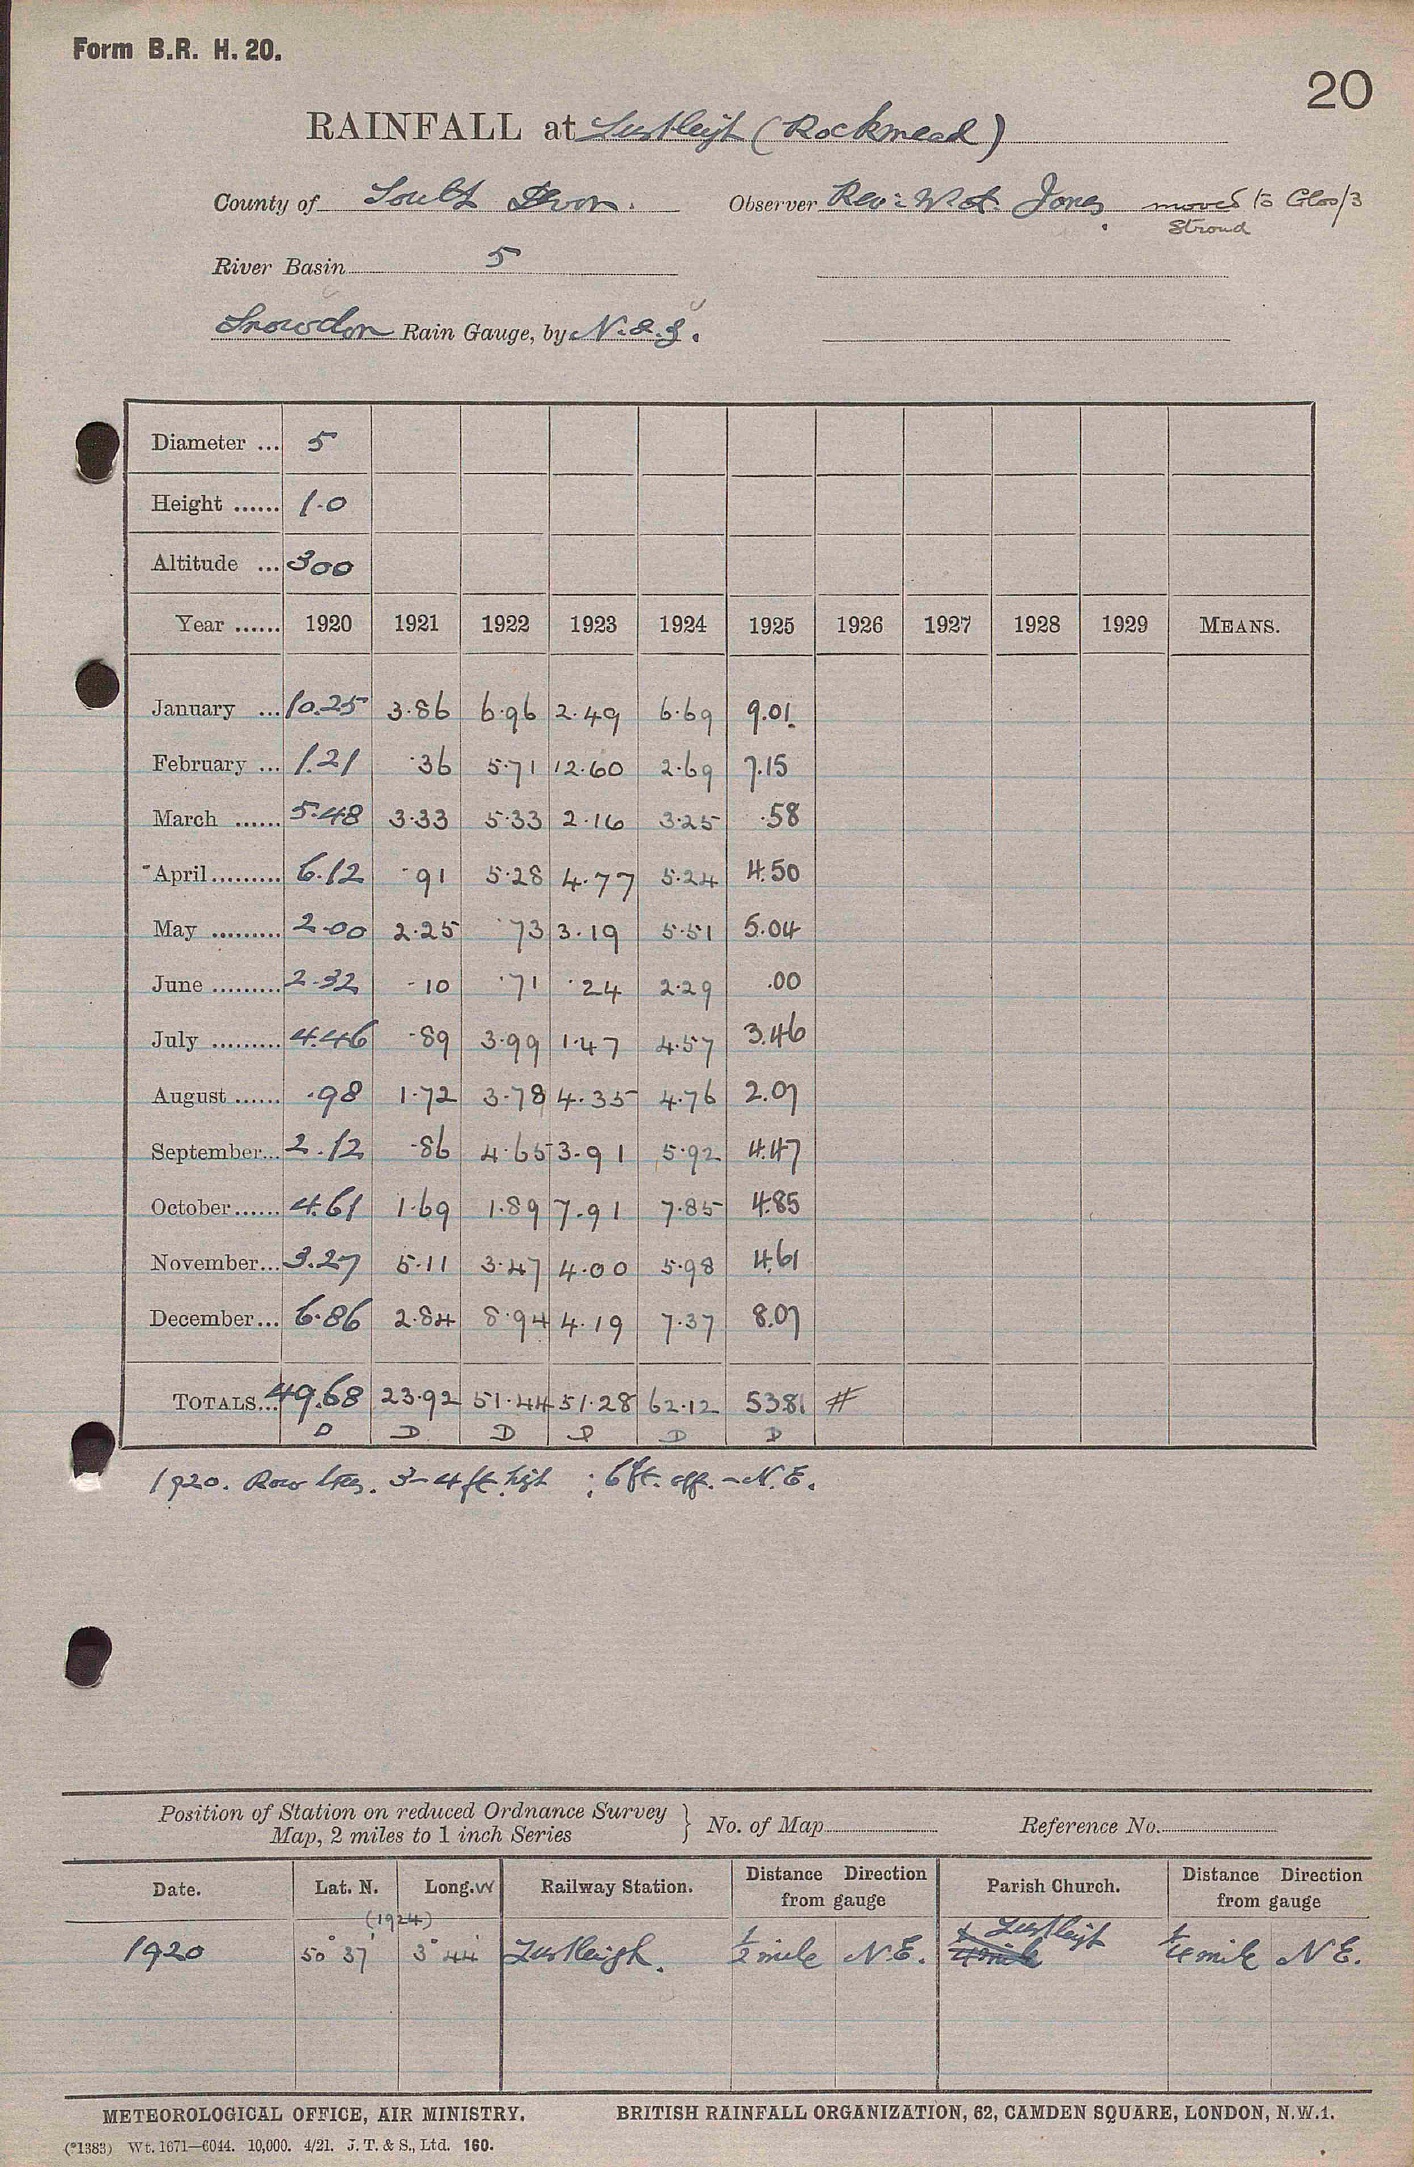 Form B.R. H. 20.
20
RAINFALL at Lustleigh (Rockmead)
County of South Devon. Observer Rev: W. A. Jones. moved to Glos/3
Stroud
River Basin 5
Snowdon Rain Gauge, by N. & Z.
Diameter ... 5
Height ...... 1.0
Altitude ... 300
Year ...... 1920 1921 1922 1923 1924 1925 1926 1927 1928 1929 MEANS.
January ... 10.25 3.86 6.96 2.49 6.69 9.01
February ... 1.21 .36 5.71 12.60 2.69 7.15
March ...... 5.48 3.33 5.33 2.16 3.25 .58
April ......... 6.12 .91 5.28 4.77 5.24 4.50
May ......... 2.00 2.25 .73 3.19 5.51 5.04
June ......... 2.32 .10 .71 .24 2.29 .00
July ......... 4.46 .89 3.99 1.47 4.57 3.46
August ...... .98 1.72 3.78 4.35 4.76 2.07
September... 2.12 .86 4.65 3.91 5.92 4.47
October ...... 4.61 1.69 1.89 7.91 7.85 4.85
November... 3.27 5.11 3.47 4.00 5.98 4.61
December... 6.86 2.84 8.94 4.19 7.37 8.07
TOTALS... 49.68 23.92 51.44 51.28 62.12 53.81 #
D D D D D D
1920. Row 3-4 ft. high ; 6 ft. off. - N.E.
Position of Station on reduced Ordnance Survey
Map, 2 miles to 1 inch Series } No. of Map Reference No.
Date. Lat. N. Long. W Railway Station. Distance Direction from gauge Parish Church. Distance Direction from gauge
(1924)
1920 50° 37' 3° 44' Lustleigh. 1/2 mile N.E. Lustleigh 1/4 mile N E.
METEOROLOGICAL OFFICE, AIR MINISTRY. BRITISH RAINFALL ORGANIZATION, 62, CAMDEN SQUARE, LONDON, N.W.1.
(*1383) Wt. 1671—6044. 10,000. 4/21. J. T. & S., Ltd. 160.